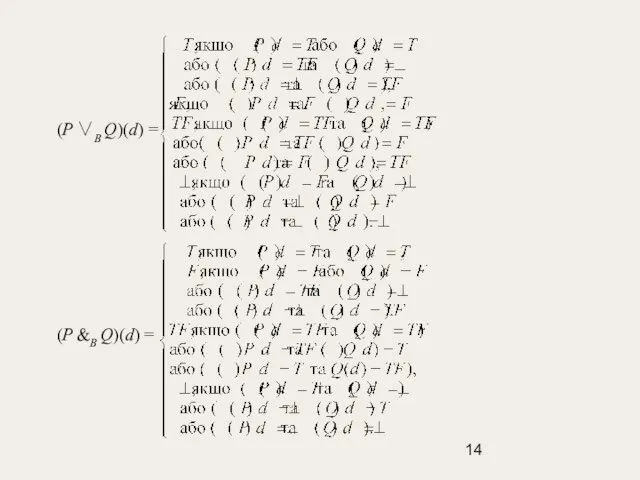 T, якщо P(d) = T або Q(d) = T
або (P(d) = TF та Q(d) = ⊥)
або (P(d) = ⊥ та Q(d) = TF),
F, якщо P(d) = F та Q(d) = F,
(P ∨B Q)(d) =
TF, якщо (P(d) = TF та Q(d) = TF)
або (P(d) = TF та Q(d) = F)
або (P(d) = F та Q(d) = TF),
⊥, якщо (P(d) = F та Q(d) = ⊥)
або (P(d) = ⊥ та Q(d) = F)
або (P(d) = ⊥ та Q(d) = ⊥).
T, якщо P(d) = T та Q(d) = T,
F, якщо P(d) = F або Q(d) = F
або (P(d) = TF та Q(d) = ⊥)
або (P(d) = ⊥ та Q(d) = TF),
(P &B Q)(d) =
TF, якщо (P(d) = TF та Q(d) = TF)
або (P(d) = TF та Q(d) = T)
або (P(d) = T та Q(d) = TF),
⊥, якщо (P(d) = T та Q(d) = ⊥)
або (P(d) = ⊥ та Q(d) = T)
або (P(d) = ⊥ та Q(d) = ⊥).
14